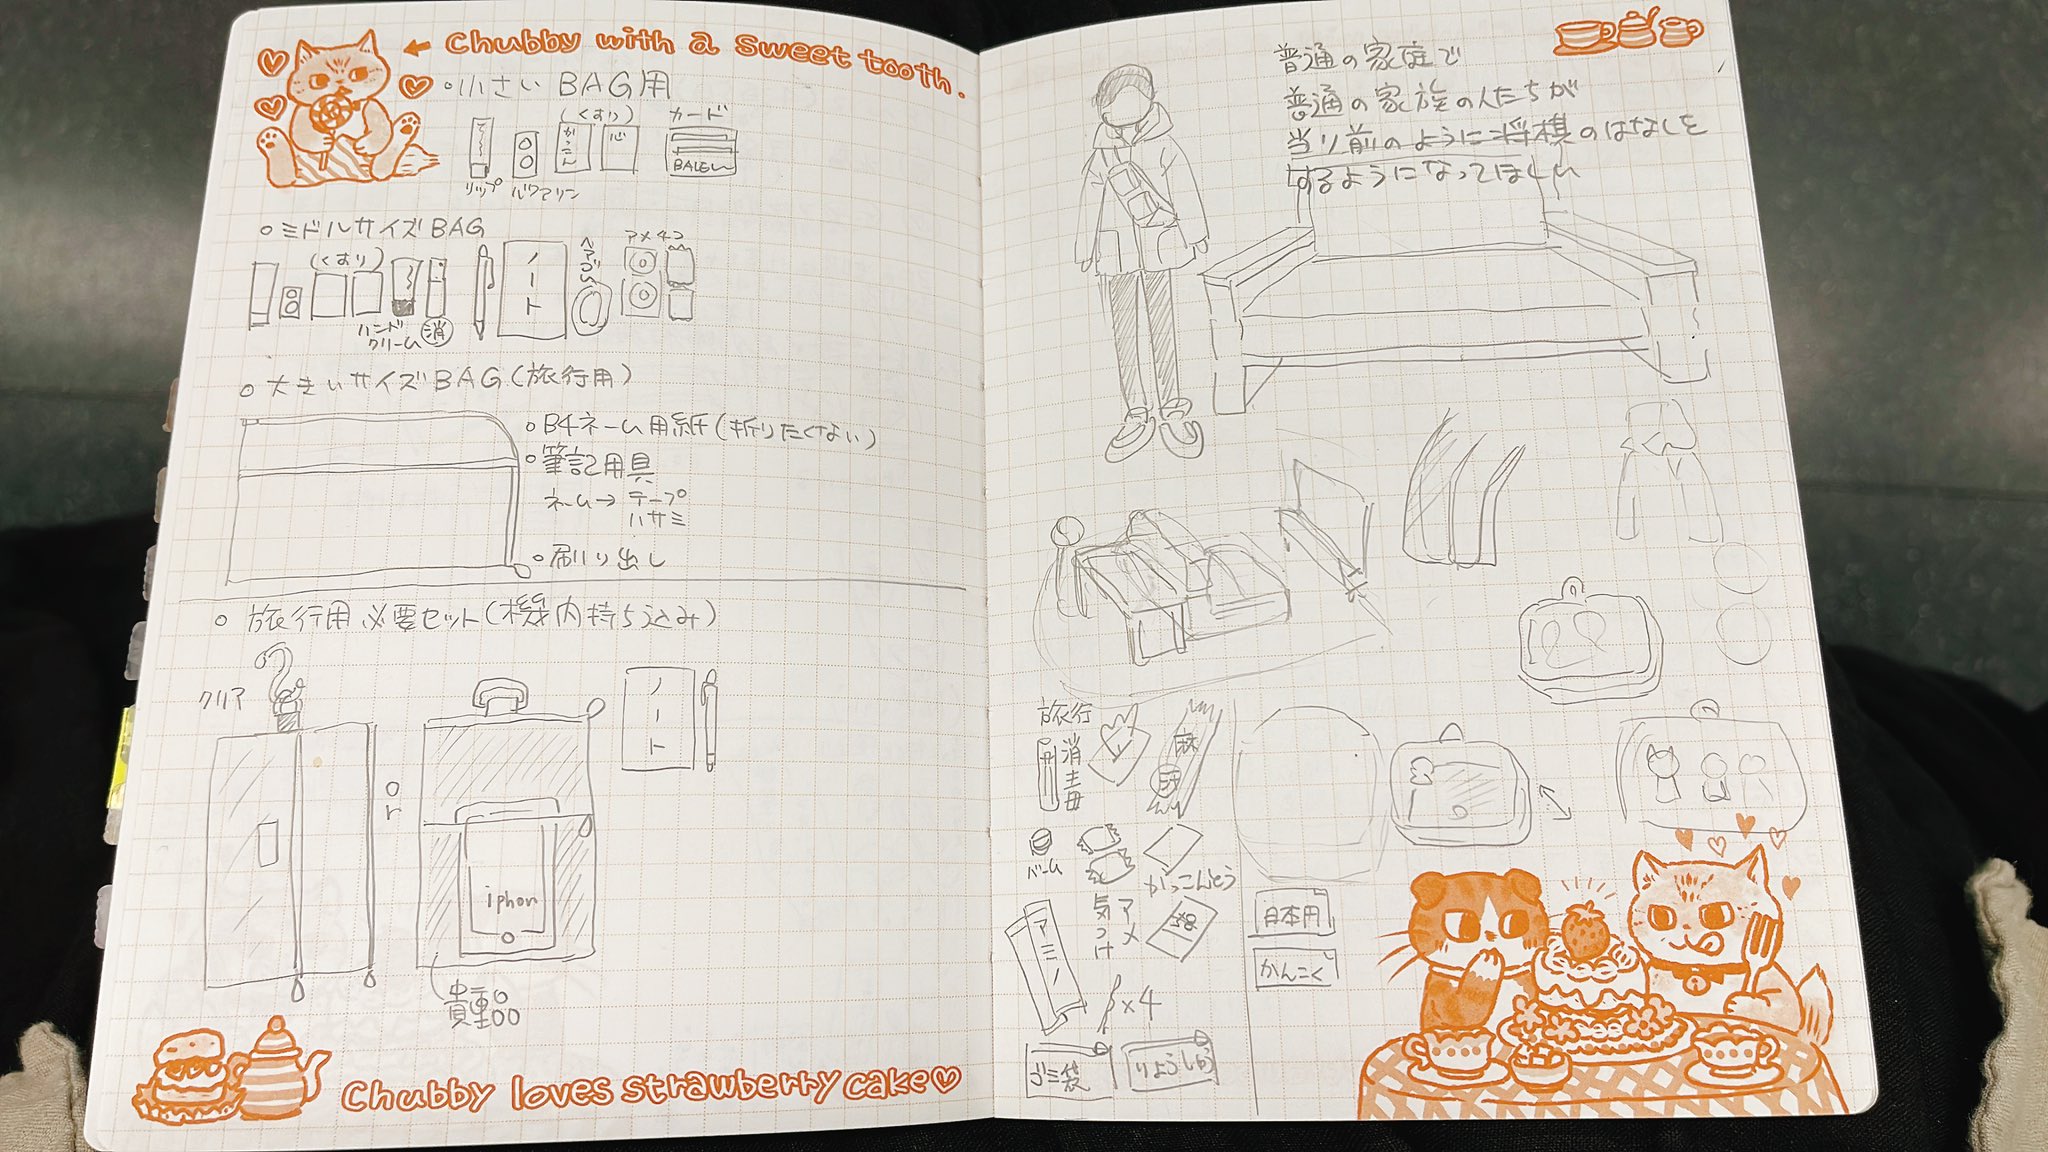 Chubby with a sweet tooth.
○小さい BAG用
(くすり)
カード
かっこん
心
リップ
バファリン
○ミドルサイズBAG
(くすり)
ハンド
クリーム
消
ノート
ヘアゴム
アメ4コ
○大きいサイズBAG(旅行用)
○B4ネーム用紙(折りたくない)
○筆記用具
ネーム→テープ
ハサミ
○刷り出し
○旅行用必要セット(機内持ち込み)
クリア
or
ノート
iphon
貴重品
Chubby loves strawberry cake
普通の家庭で
普通の家族の人たちが
当り前のように将棋のはなしを
するようになってほしい
旅行
消毒
バーム
かっこんとう
気つけ
アメ
アミノ
×4
ゴミ袋
りょうしゅう
日本円
かんこく